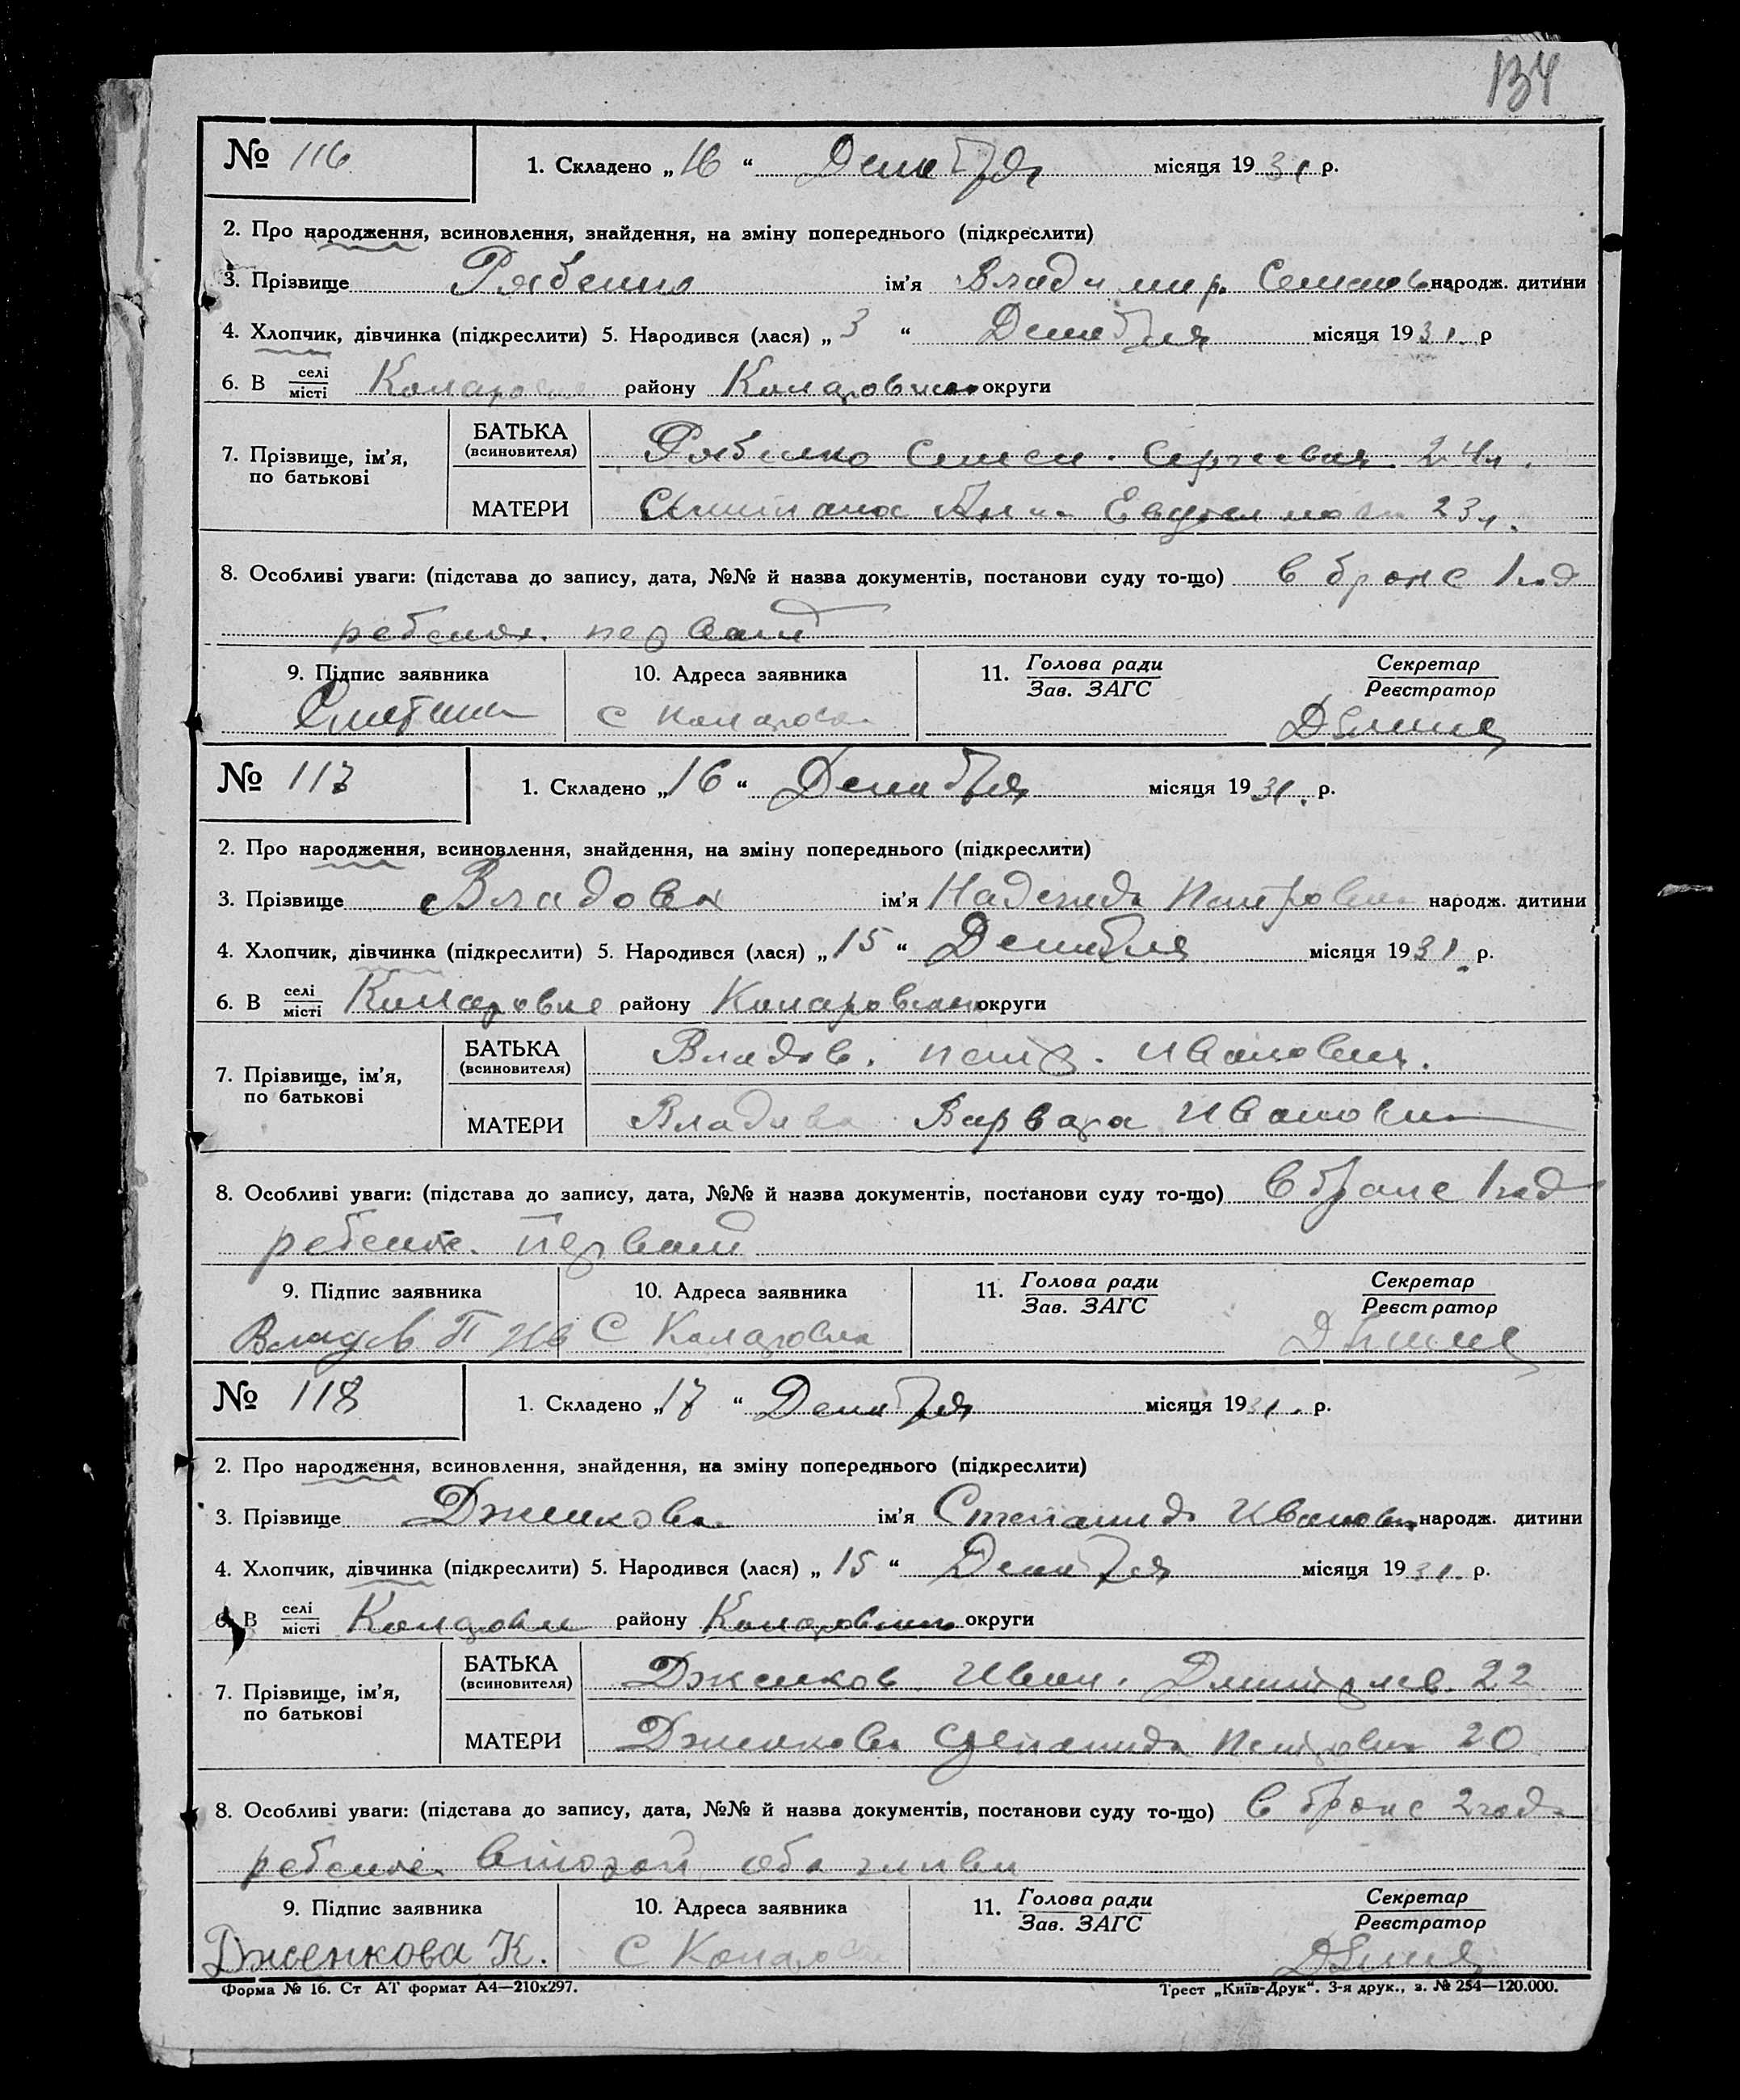 134
№ 116 1. Складено „16“ Декабря місяця 1931 р.
2. Про народження, всиновлення, знайдення, на зміну попереднього (підкреслити)
3. Прізвище Рябенко ім’я Владимир. Семенов народж. дитини
4. Хлопчик, дівчинка (підкреслити) 5. Народився (лася) „3“ Декабря місяця 1931. р
6. В селі/місті району округи
7. Прізвище, ім’я, по батькові
БАТЬКА (всиновителя) Рябенко Семен. 24 л.
МАТЕРИ 23 л.
8. Особливі уваги: (підстава до запису, дата, №№ й назва документів, постанови суду то-що) в браке 1 год
ребенок. первый
9. Підпис заявника 10. Адреса заявника 11. Голова ради/Зав. ЗАГС Секретар/Реєстратор
С
№ 117 1. Складено „16“ Декабря місяця 1931. р.
2. Про народження, всиновлення, знайдення, на зміну попереднього (підкреслити)
3. Прізвище Владова ім’я Надежда Петровна народж. дитини
4. Хлопчик, дівчинка (підкреслити) 5. Народився (лася) „15“ Декабря місяця 1931. р.
6. В селі/місті району округи
7. Прізвище, ім’я, по батькові
БАТЬКА (всиновителя) Владов. Петр. Иванович.
МАТЕРИ Владова Варвара Ивановна
8. Особливі уваги: (підстава до запису, дата, №№ й назва документів, постанови суду то-що) в браке 1 год
ребенок. первый
9. Підпис заявника 10. Адреса заявника 11. Голова ради/Зав. ЗАГС Секретар/Реєстратор
Владов П Ив С
№ 118 1. Складено „17“ Декабря місяця 1931. р.
2. Про народження, всиновлення, знайдення, на зміну попереднього (підкреслити)
3. Прізвище Дженкова ім’я Степанида Ивановн народж. дитини
4. Хлопчик, дівчинка (підкреслити) 5. Народився (лася) „15“ Декабря місяця 1931. р.
6. В селі/місті району округи
7. Прізвище, ім’я, по батькові
БАТЬКА (всиновителя) Дженков Иван. Дмитриев. 22
МАТЕРИ Дженкова Степанида Петровна 20
8. Особливі уваги: (підстава до запису, дата, №№ й назва документів, постанови суду то-що) в браке 2 года
ребенок. второй оба живы
9. Підпис заявника 10. Адреса заявника 11. Голова ради/Зав. ЗАГС Секретар/Реєстратор
Дженкова К. С
Форма № 16. Ст АТ формат А4—210х297. Трест „Київ-Друк“. 3-я друк., з. № 254—120.000.